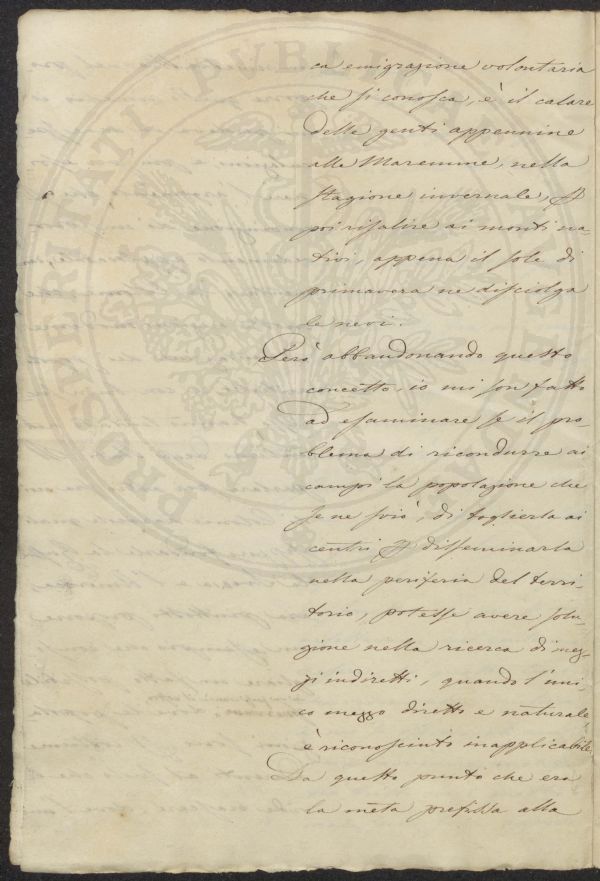 ca emigrazione volontaria
che si conosca, è il calare
delle genti appennine
alle Maremme, nella
stagione invernale, p
poi risalire ai monti na-
tivi, appena il sole di
primavera ne disciolga
le nevi.
Però abbandonando questo
concetto, io mi son fatto
ad esaminare se il pro-
blema di ricondurre ai
campi la popolazione che
se ne sviò, di toglierla ai
centri p disseminarla
nella periferia del terri-
torio, potesse avere solu-
zione nella ricerca di mez-
zi indiretti, quando l'uni-
co mezzo diretto e naturale
è riconosciuto inapplicabile.
Da questo punto che era
la méta prefissa alla
PROSPERITATI PVBLICAE AVGENDAE